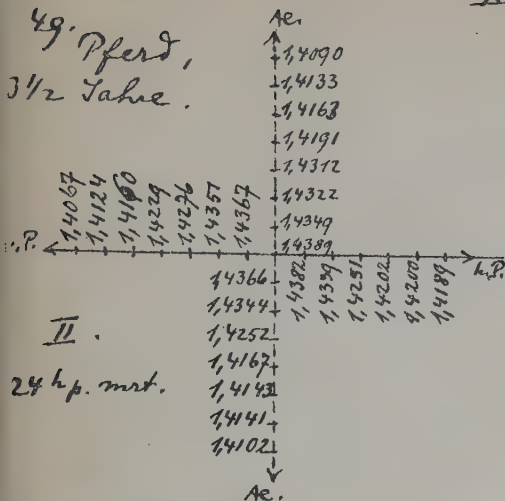 49.
Pferd,
3 1/2 Jahre.
Ae.
1,4090
1,4133
1,4163
1,4191
1,4312
1,4322
1,4349
1,4389
1,4067
1,4124
1,4160
1,4229
1,4276
1,4351
1,4367
v.P.
h.P.
1,4382
1,4339
1,4251
1,4202
1,4200
1,4189
1,4366
1,4344
1,4252
1,4167
1,4143
1,4141
1,4102
II.
24 h p. mrt.
Ae.